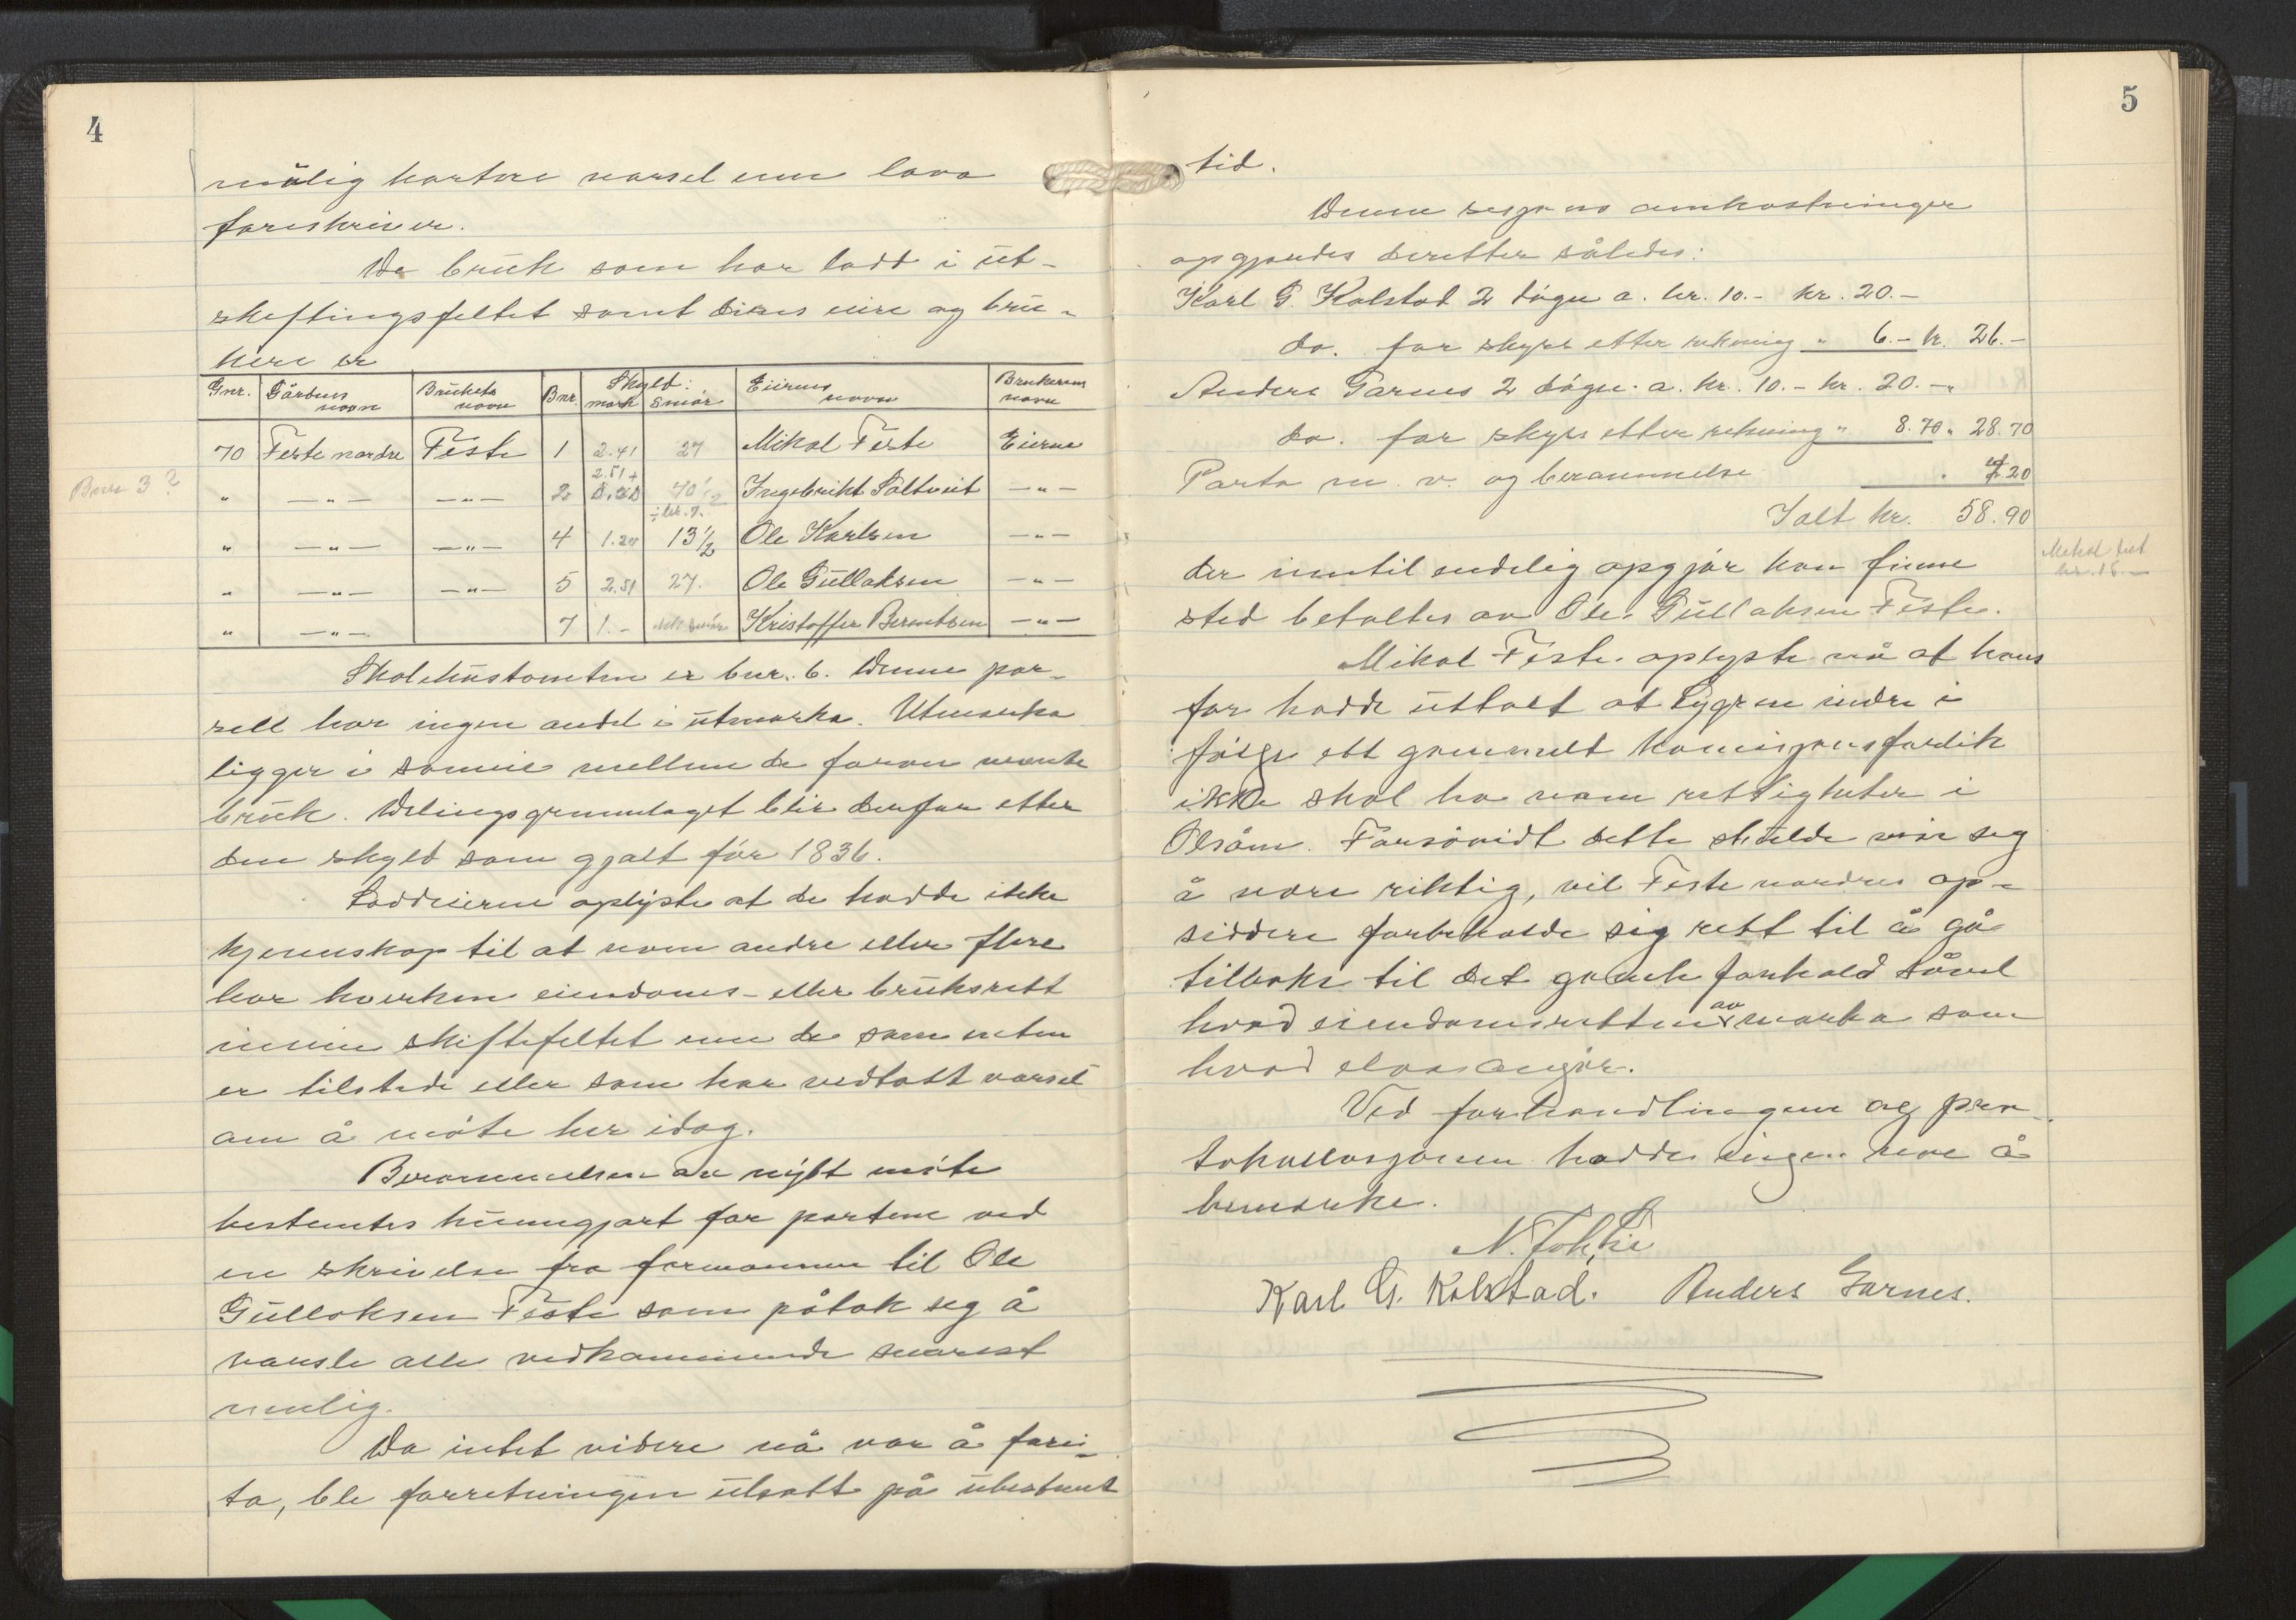 4
mulig kortere varsel enn lova
foreskriver.
De bruk som har lodd i ut-
skiftingsfeltet samt deres eiere og bru-
kere er
Gnr. Gårdens navn Brukets navn Bnr. Skyld: mark smør Eierens navn Brukerens navn
70 Feste nordre Feste 1 2.41 27 Mikal Feste Eierne
Bnr 3?
" —"— —"— 2 2.51+ 40 1/2 Ingebrikt Saltveit —"—
" —"— —"— 4 1.24 13 1/2 Ole Karlsen —"—
" —"— —"— 5 2.51 27. Ole Gullaksen —"—
" —"— 7 1.- Kristoffer Berentsen —"—
Skolehustomten er bnr. 6. Denne par-
sell har ingen andel i utmarka. Utmarka
ligger i sameie mellem de foran nevnte
bruk. Delingsgrunnlaget blir derfor etter
den skyld som gjalt før 1836.
Loddeierne oplyste at de hadde ikke
kjennskap til at noen andre eller flere
har hverken eiendoms- eller bruksrett
innen skiftefeltet enn de som enten
er tilstede eller som har vedtatt varsel
om å møte her idag.
Berammelsen av nytt møte
bestemtes kunngjort for partene ved
en skrivelse fra formannen til Ole
Gullaksen Feste som påtok seg å
varsle alle vedkommende snarest
mulig.
Da intet videre nå var å fore-
ta, ble forretningen utsatt på ubestemt
5
tid.
Denne sesjons omkostninger
opgjordes deretter således:
Karl G. Kolstad 2 døgn a. kr. 10.- kr. 20.-
do. for skyss etter rekning " 6.- kr. 26.-
Anders Garnes 2 døgn. a. kr. 10.- kr. 20.-
do. for skyss etter rekning " 8.70 " 28.70
Porto m. v. og berammelse " 4.20
Ialt kr. 58.90
der inntil endelig opgjør kan finne
sted betaltes av Ole Gullaksen Feste.
Mikal Feste oplyste nå at hans
far hadde uttalt at Lygren indre i
følge ett gammelt kommisjonsforlik
ikke skal ha noen rettigheter i
Olsåm. Forsåvidt dette skulde vise seg
å være riktig, vil Feste nordres op-
siddere forbeholde sig rett til å gå
tilbake til det gamle forhold såvel
hvad eiendomsretten av marka som
hvad elva angår.
Ved forhandlingen og pro-
tokollasjonen hadde ingen noe å
bemerke.
Karl G. Kolstad. Anders Garnes.